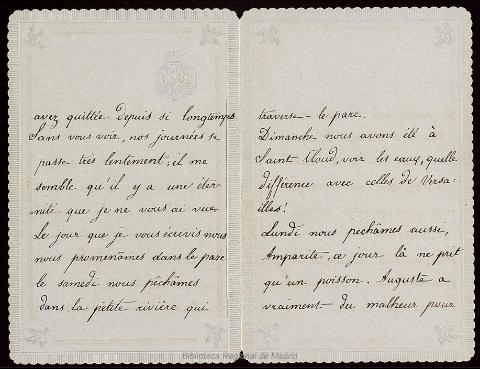 avez quittée depuis si longtemps
Sans vous voir, nos journées se
passe très lentement; il me
semble qu'il y a une éter-
nité que je ne vous ai vue
Le jour que je vous écrivis nous
nous promenâmes dans le parc
le samedi nous pêchâmes
dans la petite rivière qui
traverse le parc.
Dimanche nous avons été à
Saint Cloud, voir les eaux, quelle
différence avec celles de Versa-
illes!
Lundi nous pechâmes aussi,
Amparite, ce jour là ne prit
qu'un poisson. Auguste a
vraiment du malheur pour
Biblioteca Regional de Madrid